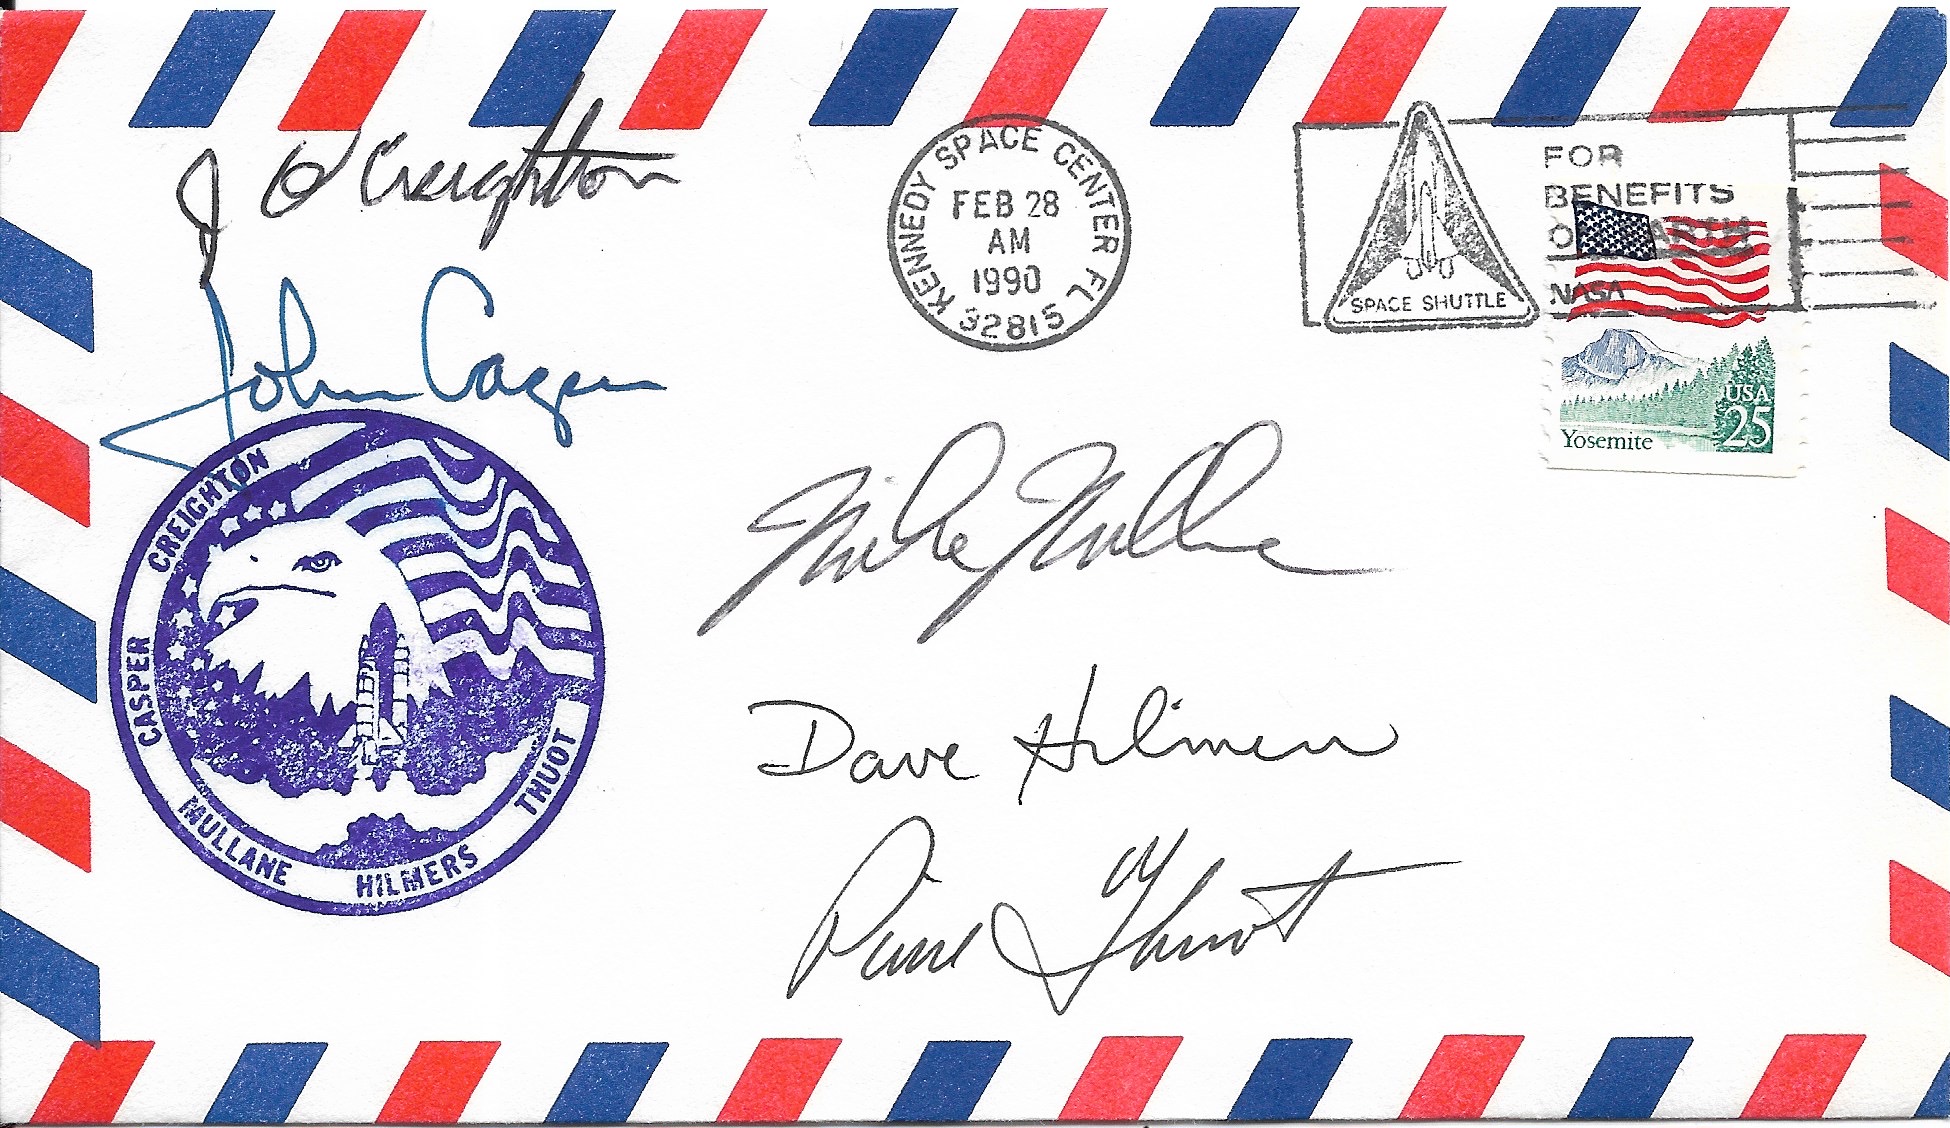 J O Creighton
John Casper
KENNEDY SPACE CENTER FL 32815
FEB 28
AM
1990
SPACE SHUTTLE
FOR
BENEFITS
ON EARTH
NASA
USA
25
Yosemite
CASPER CREIGHTON
MULLANE HILMERS THUOT
Mike Mullane
Dave Hilmers
Pierre J Thuot